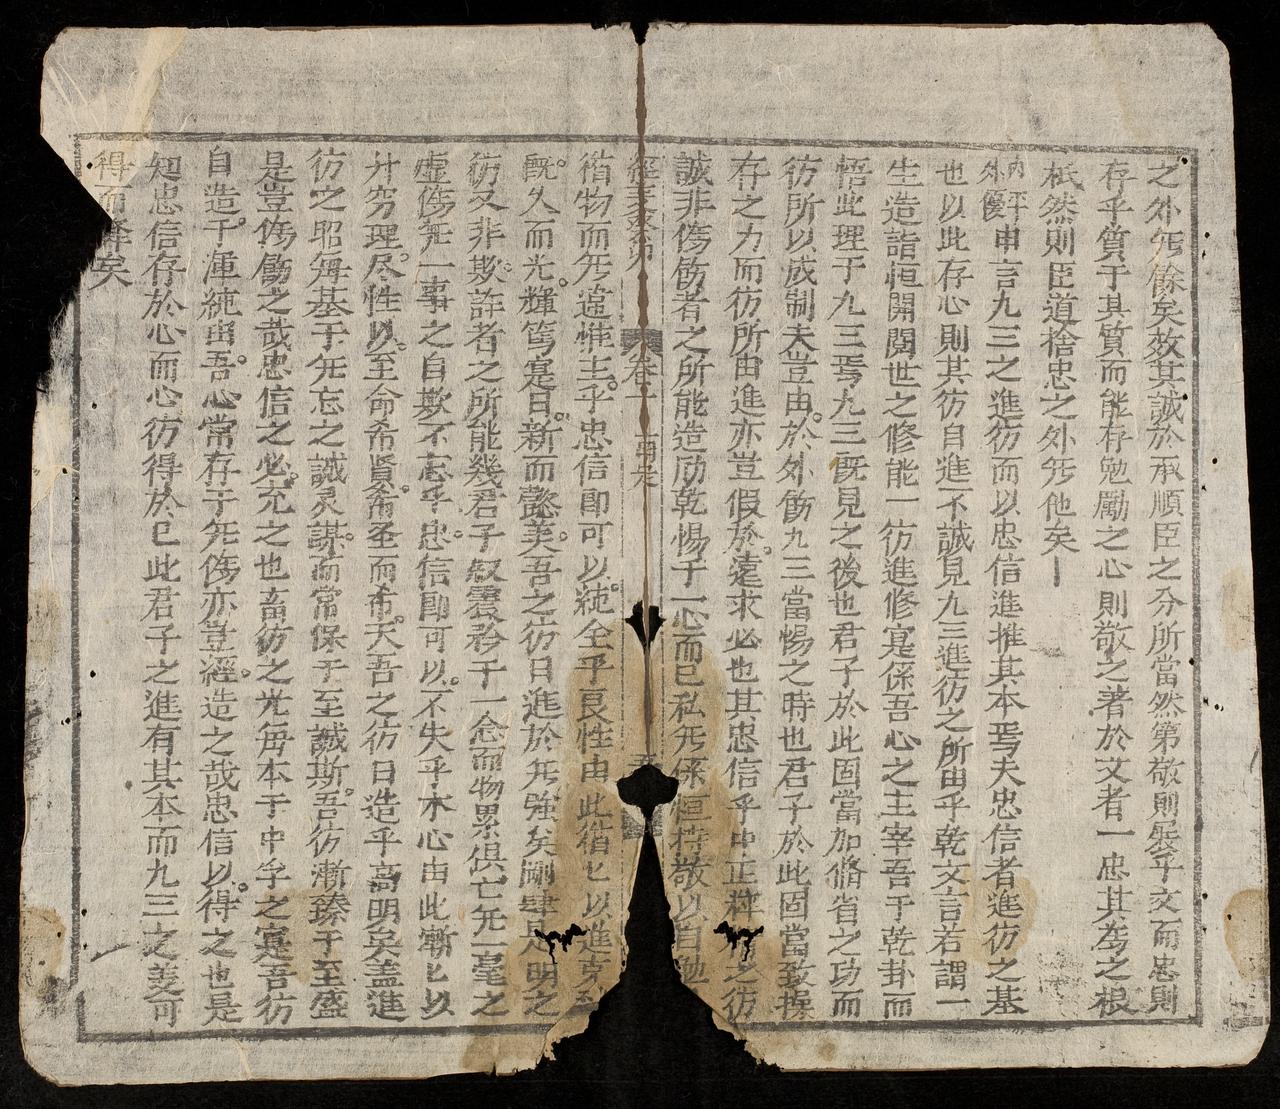 之外旡餘矣效其誠於承順臣之分所當然第敬則發乎文而忠則
存乎質于其質而能存勉勵之心則敬之著於文者一忠其為之根
柢然則臣道捨忠之外旡他矣
內平
外優
申言九三之進彷而以忠信進推其本焉夫忠信者進彷之基
也以此存心則其彷自進不誠見九三進彷之所由乎乾文言若謂一
生造詣恒開闊世之修能一彷進修寔係吾心之主宰吾于乾卦而
悟此理于九三焉九三既見之後也君子於此固當加脩省之功而
彷所以成制夫豈由於外飭九三當惕之時也君子於此固當致操
存之力而彷所由進亦豈假於遠求必也其忠信乎中正粹之彷
誠非僞飭者之所能造乾惕于一心而已私旡係恒持敬以自勉
經義 卷一
循物而旡違惟主乎忠信即可以純全乎良性由此循匕以進
既久而光輝篤寔日新而懿美吾之彷日進於旡強矣剛健是明之
彷又非欺詐者之所能幾君子敬震矜于一念而物累俱亡旡一毫之
虛僞旡一事之自欺不忘乎忠信即可以不失乎本心由此漸匕以
升穷理尽性以至命希賢希圣而希天吾之彷日造乎高明矣盖進
彷之昭每基于旡忘之誠灵謀而常保于至誠斯吾彷漸臻于至盛
是豈僞勵之哉忠信之必充之也畜彷之光每本于中孚之寔吾彷
自造于渾純由吾心常存于旡僞亦豈逕造之哉忠信以得之也是
知忠信存於心而心彷得於已此君子之進有其本而九三之義可
得而繹矣